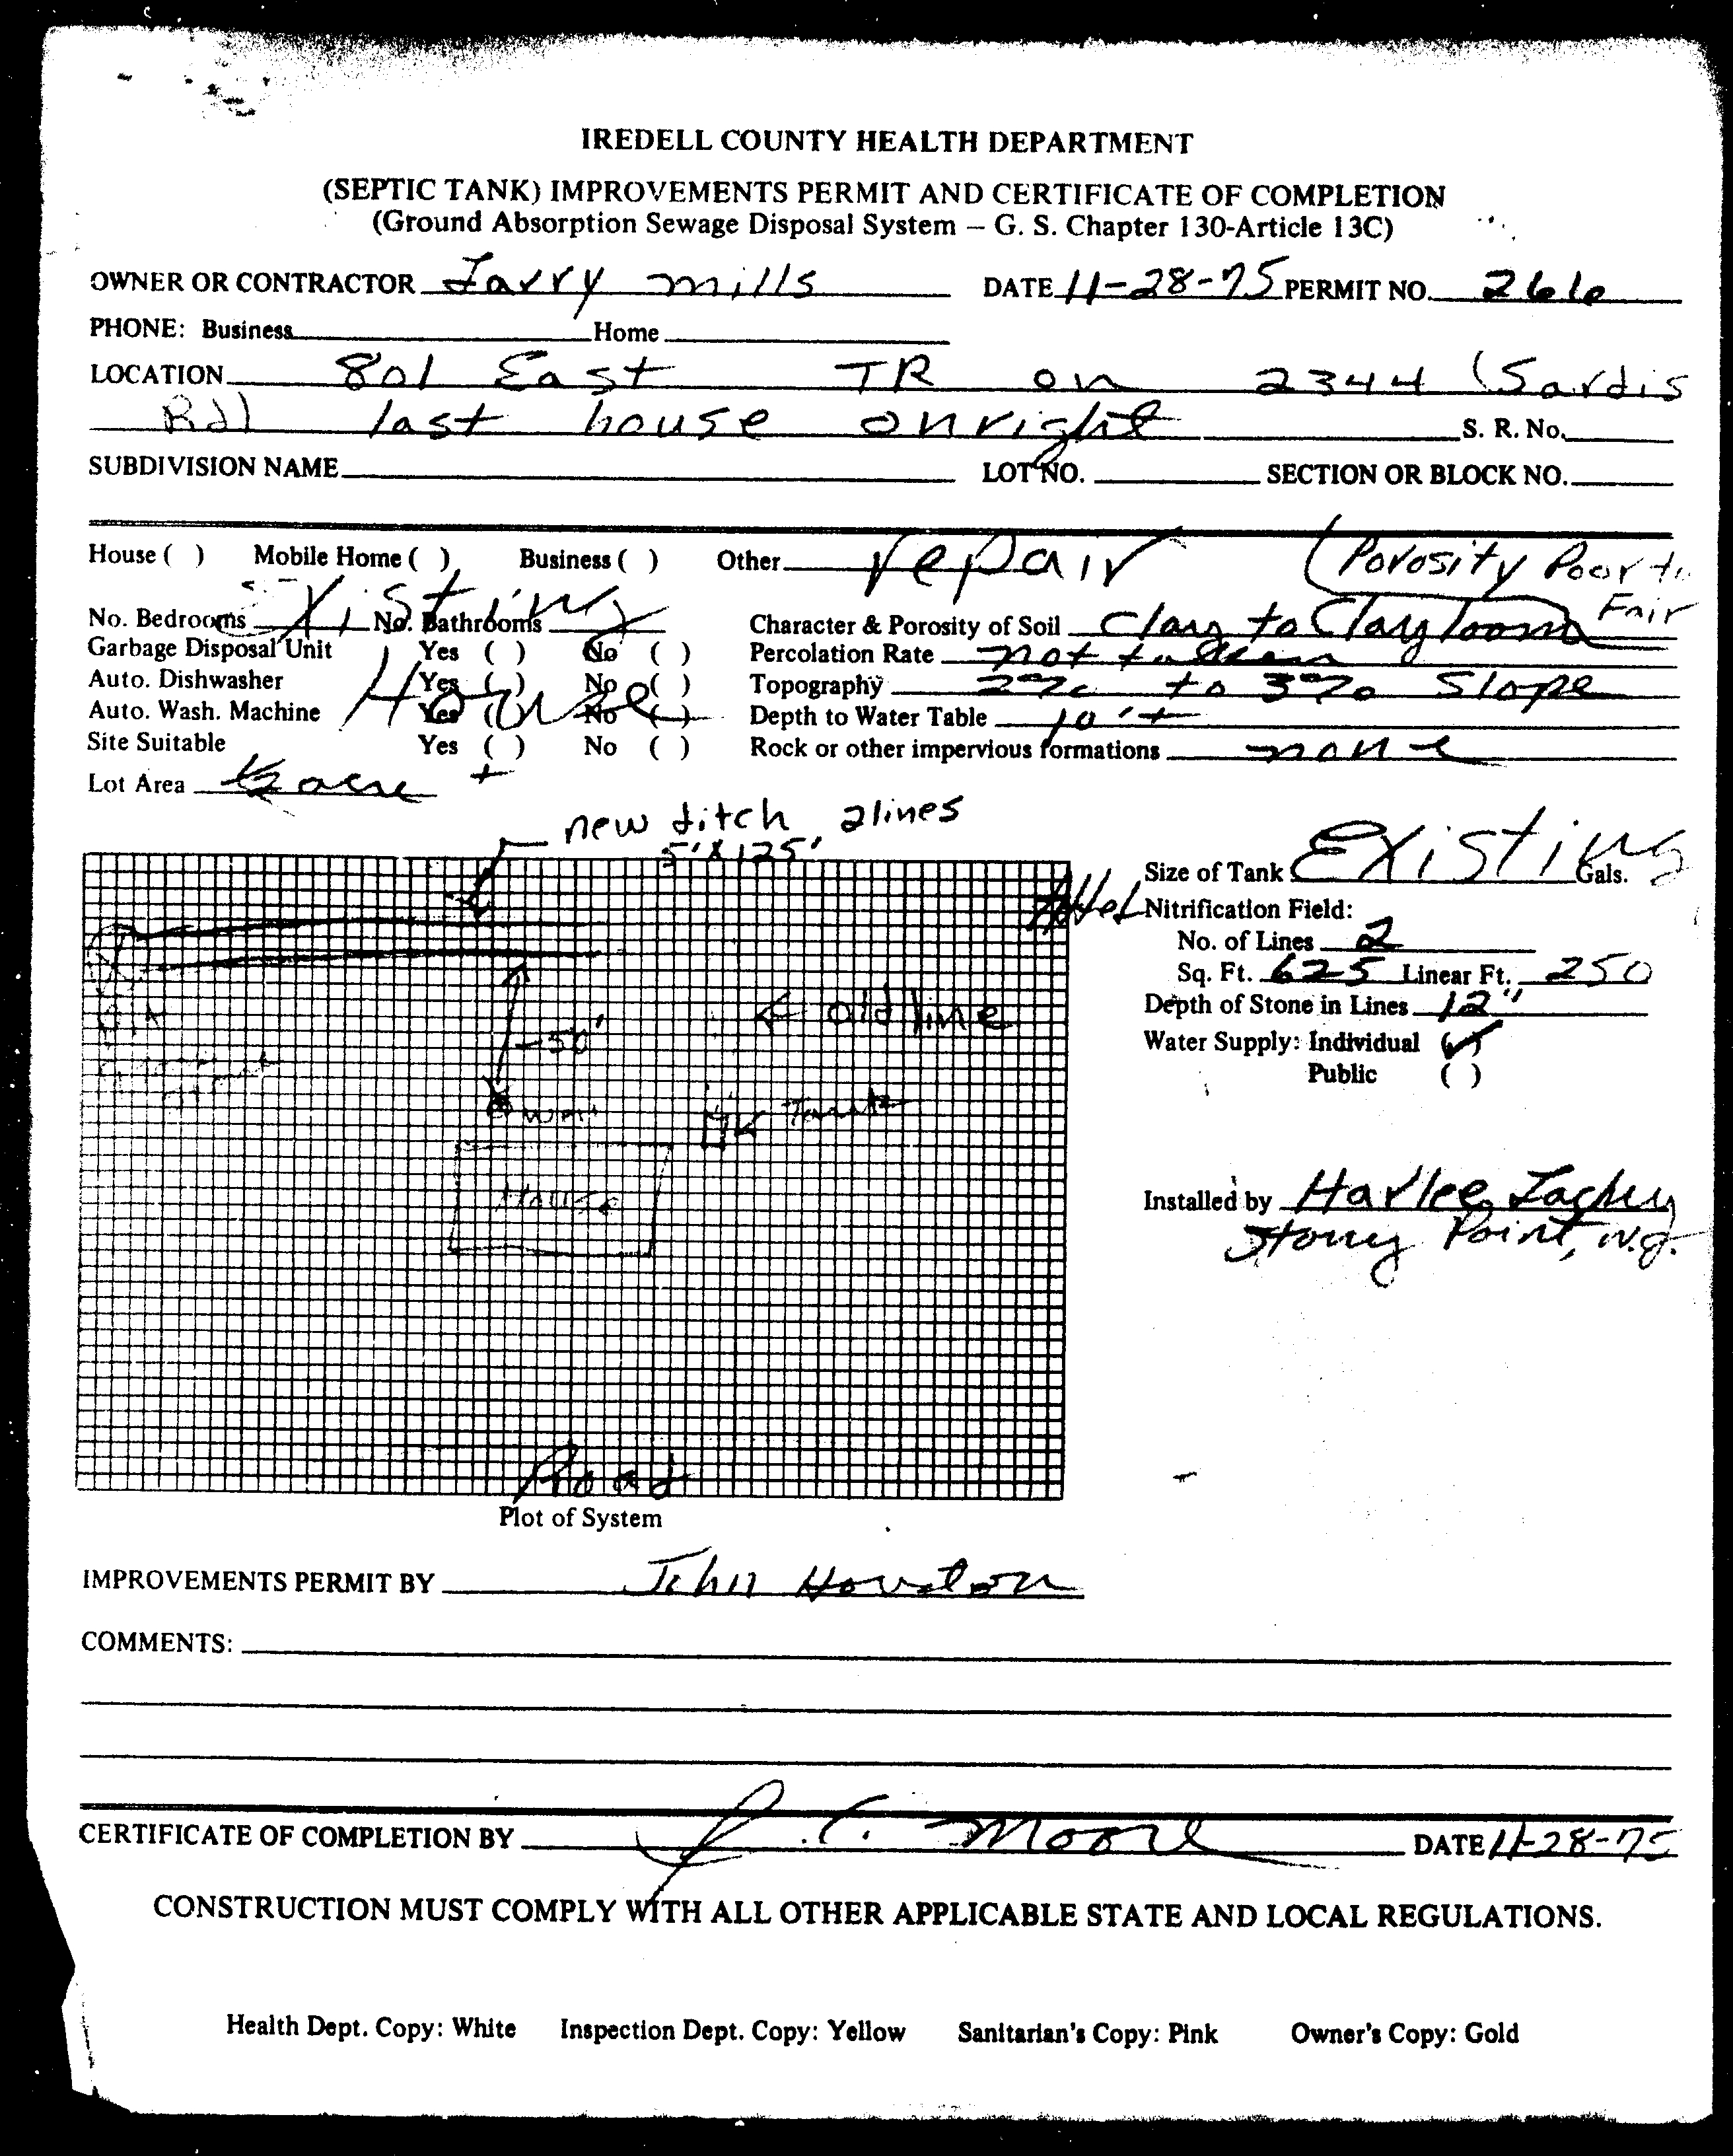 IREDELL COUNTY HEALTH DEPARTMENT
(SEPTIC TANK) IMPROVEMENTS PERMIT AND CERTIFICATE OF COMPLETION
(Ground Absorption Sewage Disposal System – G. S. Chapter 130-Article 13C)
OWNER OR CONTRACTOR Larry Mills DATE 11-28-75 PERMIT NO. 266
PHONE: Business Home
LOCATION 801 East TR on 2344 (Sardis
Rd) last house on right S. R. No.
SUBDIVISION NAME LOT NO. SECTION OR BLOCK NO.
House ( ) Mobile Home ( ) Business ( ) Other repair (Porosity Poor to
Fair
No. Bedrooms Existing No. Bathrooms Character & Porosity of Soil Clay to Clay loom
Garbage Disposal Unit Yes ( ) No ( ) Percolation Rate not taken
Auto. Dishwasher Yes ( ) No ( ) Topography 2% to 3% Slope
House
Auto. Wash. Machine Yes ( ) No ( ) Depth to Water Table 10'+
Site Suitable Yes ( ) No ( ) Rock or other impervious formations none
Lot Area ½ acre +
new ditch 2 lines
5' X 125'
Size of Tank Existing Gals.
Nitrification Field:
No. of Lines 2
Sq. Ft. 625 Linear Ft. 250
Depth of Stone in Lines 12"
← old line
50'
Water Supply: Individual (✓)
Public ( )
well Tank
House
Installed by Harlee Lackey
Stony Point, N.C.
Road
Plot of System
IMPROVEMENTS PERMIT BY John Houston
COMMENTS:
CERTIFICATE OF COMPLETION BY J. C. Moore DATE 11-28-75
CONSTRUCTION MUST COMPLY WITH ALL OTHER APPLICABLE STATE AND LOCAL REGULATIONS.
Health Dept. Copy: White Inspection Dept. Copy: Yellow Sanitarian's Copy: Pink Owner's Copy: Gold